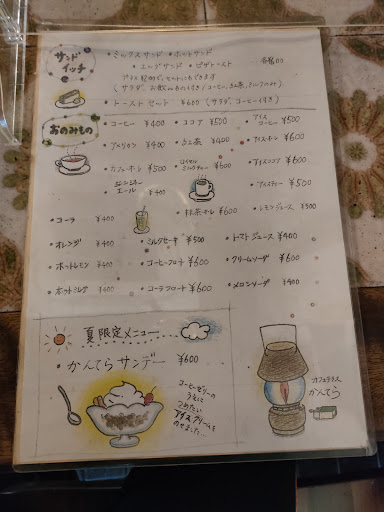 サンドイッチ
・ミックスサンド ・ホットサンド
・エッグサンド ・ピザトースト
プラス ¥ でセットにもできます
(サラダ、お飲み物付き/コーヒー、紅茶、ミルクのみ)
・トーストセット ¥600 (サラダ、コーヒー付き)
おのみもの
・コーヒー ¥400 ・ココア ¥500 ・アイスコーヒー ¥500
・アメリカン ¥400 ・紅茶 ¥400 ・アイスオーレ ¥600
・カフェオーレ ¥500 ・ロイヤルミルクティー ¥600 ・アイスココア ¥600
・ジンジャーエール ¥400 ・アイスティー ¥500
・抹茶オーレ ¥600 ・レモンジュース ¥500
・コーラ ¥400
・オレンジ ¥400 ・ミルクセーキ ¥500 ・トマトジュース ¥400
・ホットレモン ¥400 ・コーヒーフロート ¥600 ・クリームソーダ ¥600
・ホットミルク ¥400 ・コーラフロート ¥600 ・メロンソーダ ¥400
夏限定メニュー
・かんてらサンデー ¥600
コーヒーゼリーの
うえに
つめたい
アイスクリームを
のせました…
カフェテラス
かんてら